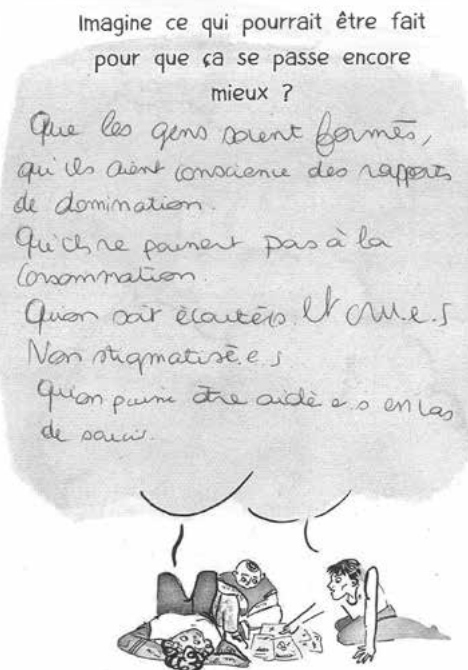 Imagine ce qui pourrait être fait
pour que ça se passe encore
mieux ?
Que les gens soient formés,
qu'ils aient conscience des rapports
de domination.
Qu'ils ne poussent pas à la
consommation
Qu'on soit écoutés. Et cru.e.s
Non stigmatisé.e.s
Qu'on puisse être aidé.e.s en cas
de souci.